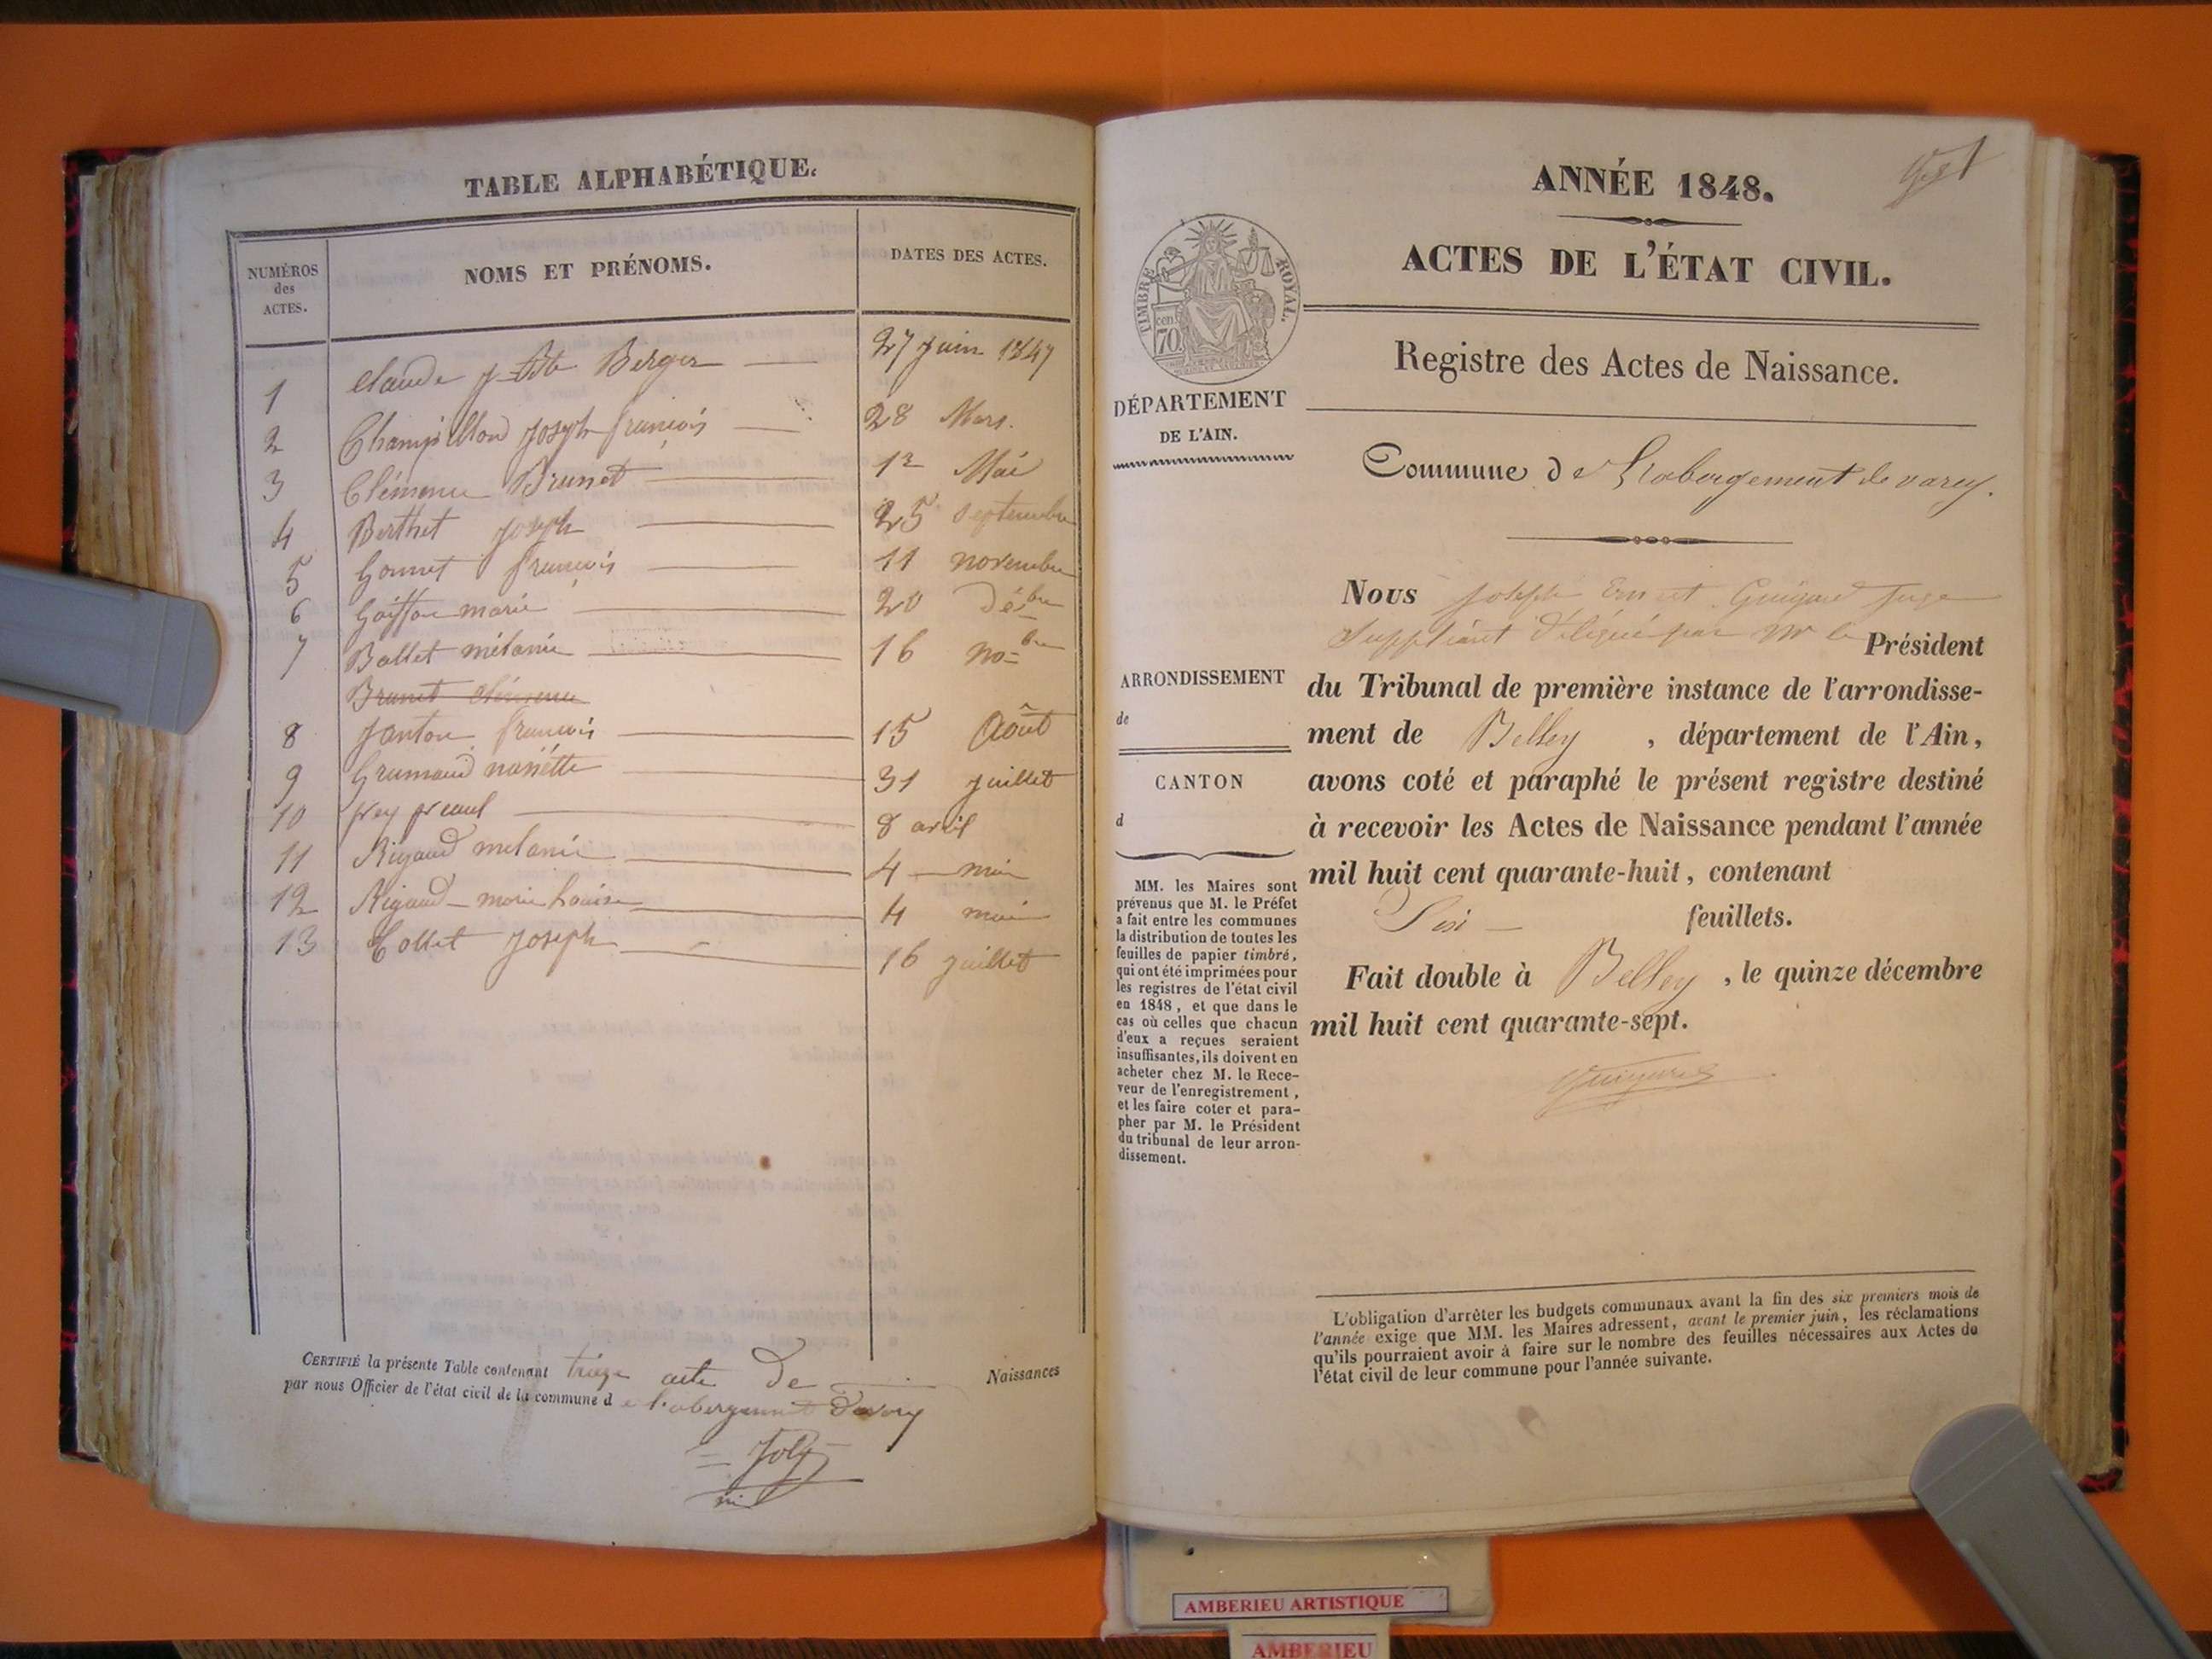 TABLE ALPHABÉTIQUE.
NUMÉROS des ACTES.
NOMS ET PRÉNOMS.
DATES DES ACTES.
1 Claude Berger 27 juin 1847
2 Champillon Joseph françois 28 Mars.
3 Clémence Brunet 1er Mai
4 Berthet Joseph 25 septembre
5 Gonnet françois 11 novembre
6 Goiffon marie 20 Décbre
7 Ballet mélanie 16 nobre
Brunet clémence
8 Janton françois 15 Août
9 Grumaud nanétte 31 juillet
10 8 avril
11 Rigaud melanie 4 mai
12 Rigaud marie Louise 4 mai
13 Collet Joseph 16 juillet
CERTIFIÉ la présente Table contenant treize acte De Naissances
par nous Officier de l'état civil de la commune de l'abergement Davary
Joly
ANNÉE 1848.
ACTES DE L'ÉTAT CIVIL.
TIMBRE ROYAL.
cen. 70.
Registre des Actes de Naissance.
DÉPARTEMENT
DE L'AIN.
Commune de Labergement de varey.
Nous Joseph Ernest Guigard Juge
Suppléant Délégué par Mr le Président
du Tribunal de première instance de l'arrondisse-
ment de Belley, département de l'Ain,
avons coté et paraphé le présent registre destiné
à recevoir les Actes de Naissance pendant l'année
mil huit cent quarante-huit, contenant
Six feuillets.
Fait double à Belley, le quinze décembre
mil huit cent quarante-sept.
Guigard
ARRONDISSEMENT
de
CANTON
d
MM. les Maires sont
prévenus que M. le Préfet
a fait entre les communes
la distribution de toutes les
feuilles de papier timbré,
qui ont été imprimées pour
les registres de l'état civil
en 1848, et que dans le
cas où celles que chacun
d'eux a reçues seraient
insuffisantes, ils doivent en
acheter chez M. le Rece-
veur de l'enregistrement,
et les faire coter et para-
pher par M. le Président
du tribunal de leur arron-
dissement.
L'obligation d'arrêter les budgets communaux avant la fin des six premiers mois de
l'année exige que MM. les Maires adressent, avant le premier juin, les réclamations
qu'ils pourraient avoir à faire sur le nombre des feuilles nécessaires aux Actes de
l'état civil de leur commune pour l'année suivante.
AMBERIEU ARTISTIQUE
AMBERIEU